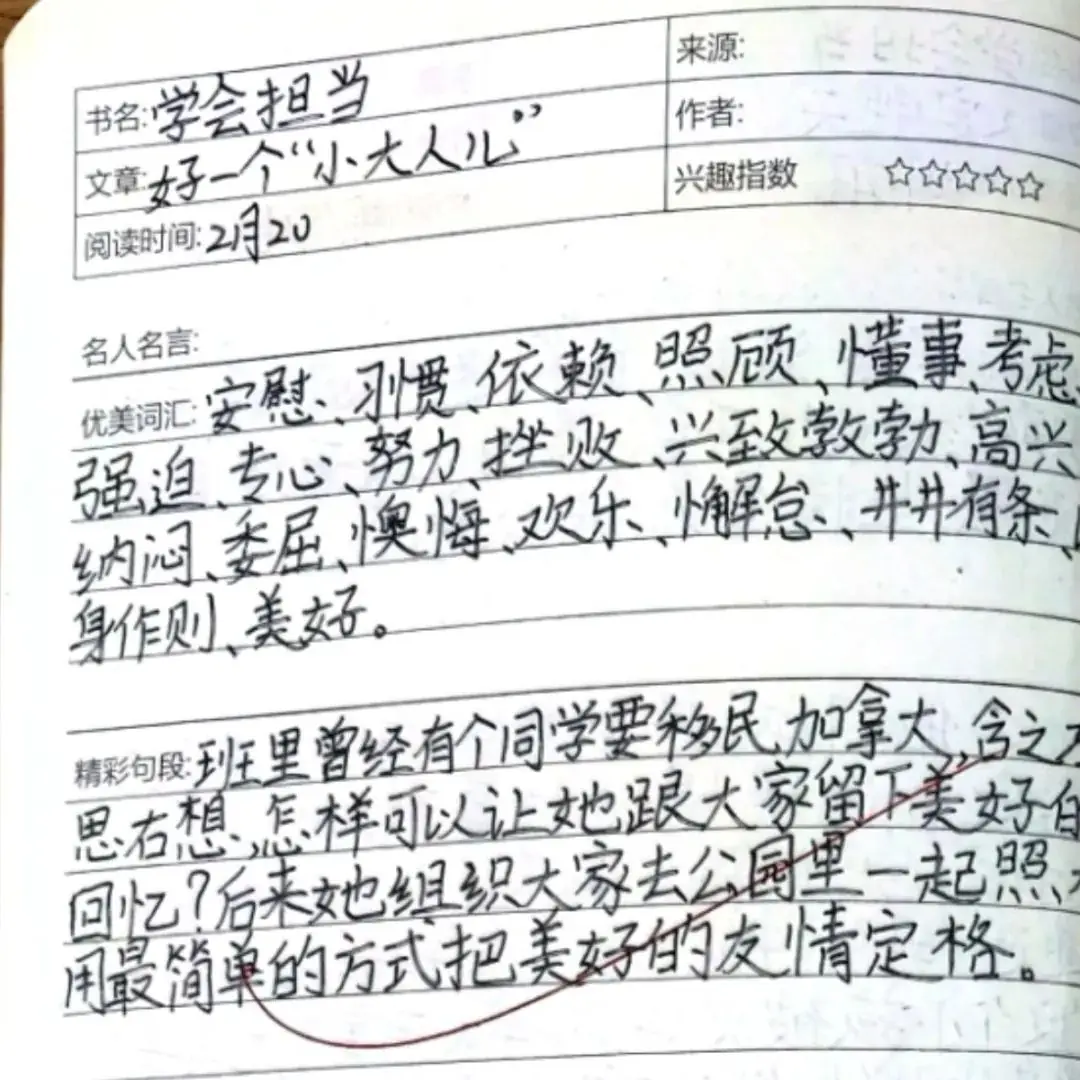 书名:学会担当
来源:
文章:好一个“小大人儿”
作者:
兴趣指数 ☆☆☆☆☆
阅读时间:2月20
名人名言:
优美词汇:安慰、习惯、依赖、照顾、懂事、考虑、
强迫、专心、努力、挫败、兴致勃勃、高兴
纳闷、委屈、懊悔、欢乐、懈怠、井井有条、
身作则、美好。
精彩句段:班里曾经有个同学要移民加拿大,含之
思右想,怎样可以让她跟大家留下美好
回忆?后来她组织大家去公园里一起照
用最简单的方式把美好的友情定格。